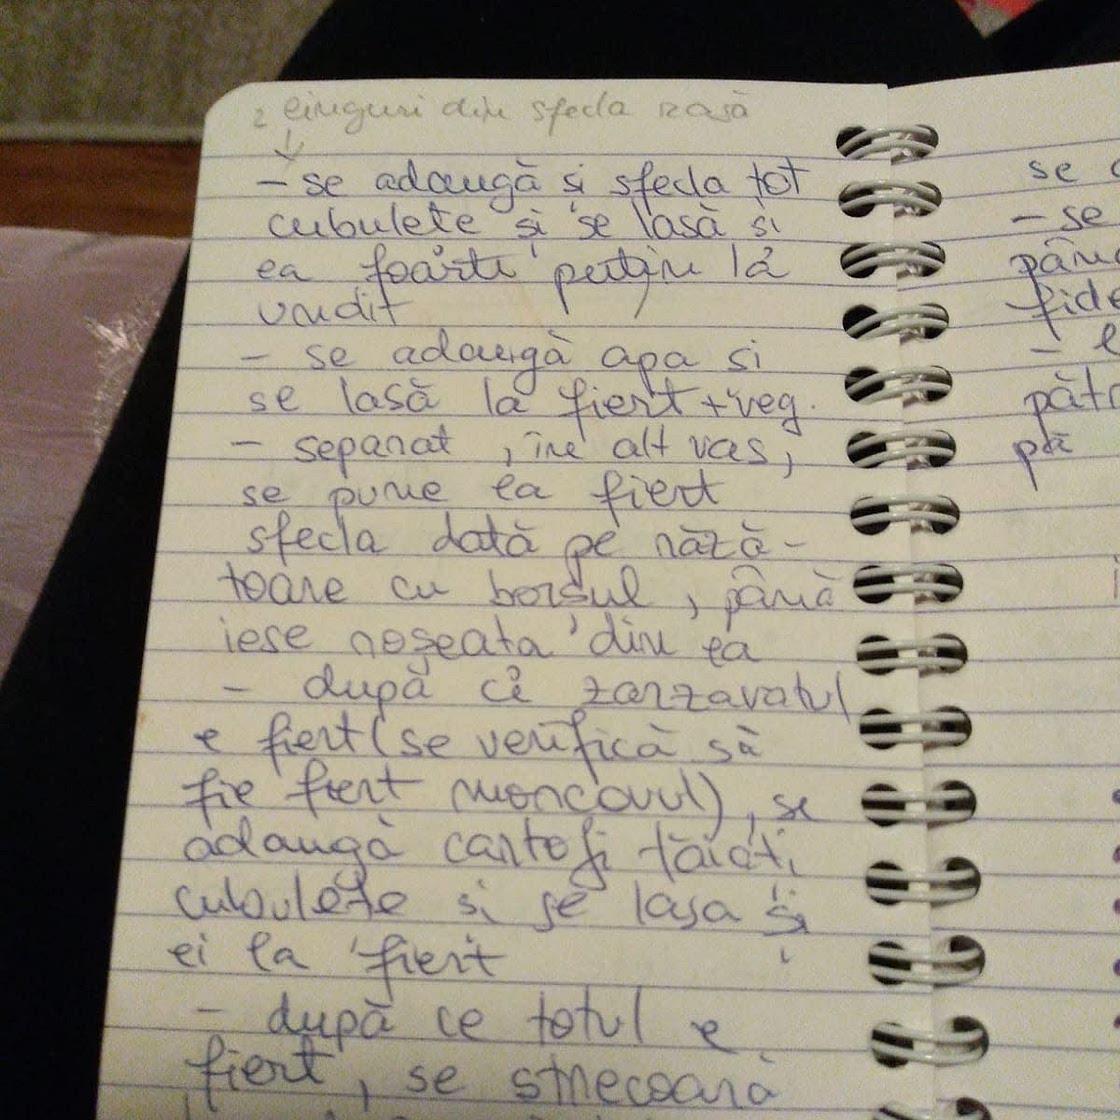 2 linguri din sfecla rasă
- se adaugă și sfecla tot
cubulete și se lasă și
ea foarte puțin la
undit
- se adaugă apa și
se lasă la fiert + veg.
- separat, în alt vas,
se pune la fiert
sfecla dată pe răză-
toare cu borșul, până
iese roșeata din ea
- după ce zarzavatul
e fiert (se verifică să
fie fiert morcovul), se
adaugă cartofi tăiați
cubulețe și se lasa și
ei la fiert
- după ce totul e
fiert, se strecoară
se
- se
pân
fid
-
păt
pă